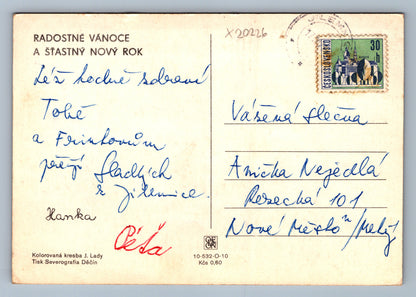 RADOSTNÉ VÁNOCE
A ŠŤASTNÝ NOVÝ ROK
X20226
JILEM
30
ČESKOSLOVENSKO
Též hodně zdraví
Tobě
a Frintovům
přejí Sladkých
z Jilemnice.
Hanka
Péťa
Vážená slečna
Anička Nejedlá
Rezecká 101
Nové Město n/Metují
Kolorovaná kresba J. Lady
Tisk Severografia Děčín
10-532-O-10
Kčs 0,60